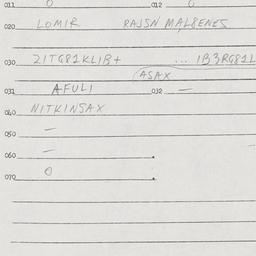 011 0 012 0
020 LOMIR RAJSN MALBENES
030 21TG81KLIB+ ... 1B3RG81L
ASAX
031 AFULI 032 —
040 NITKINSAX
050 —
060 —
070 0